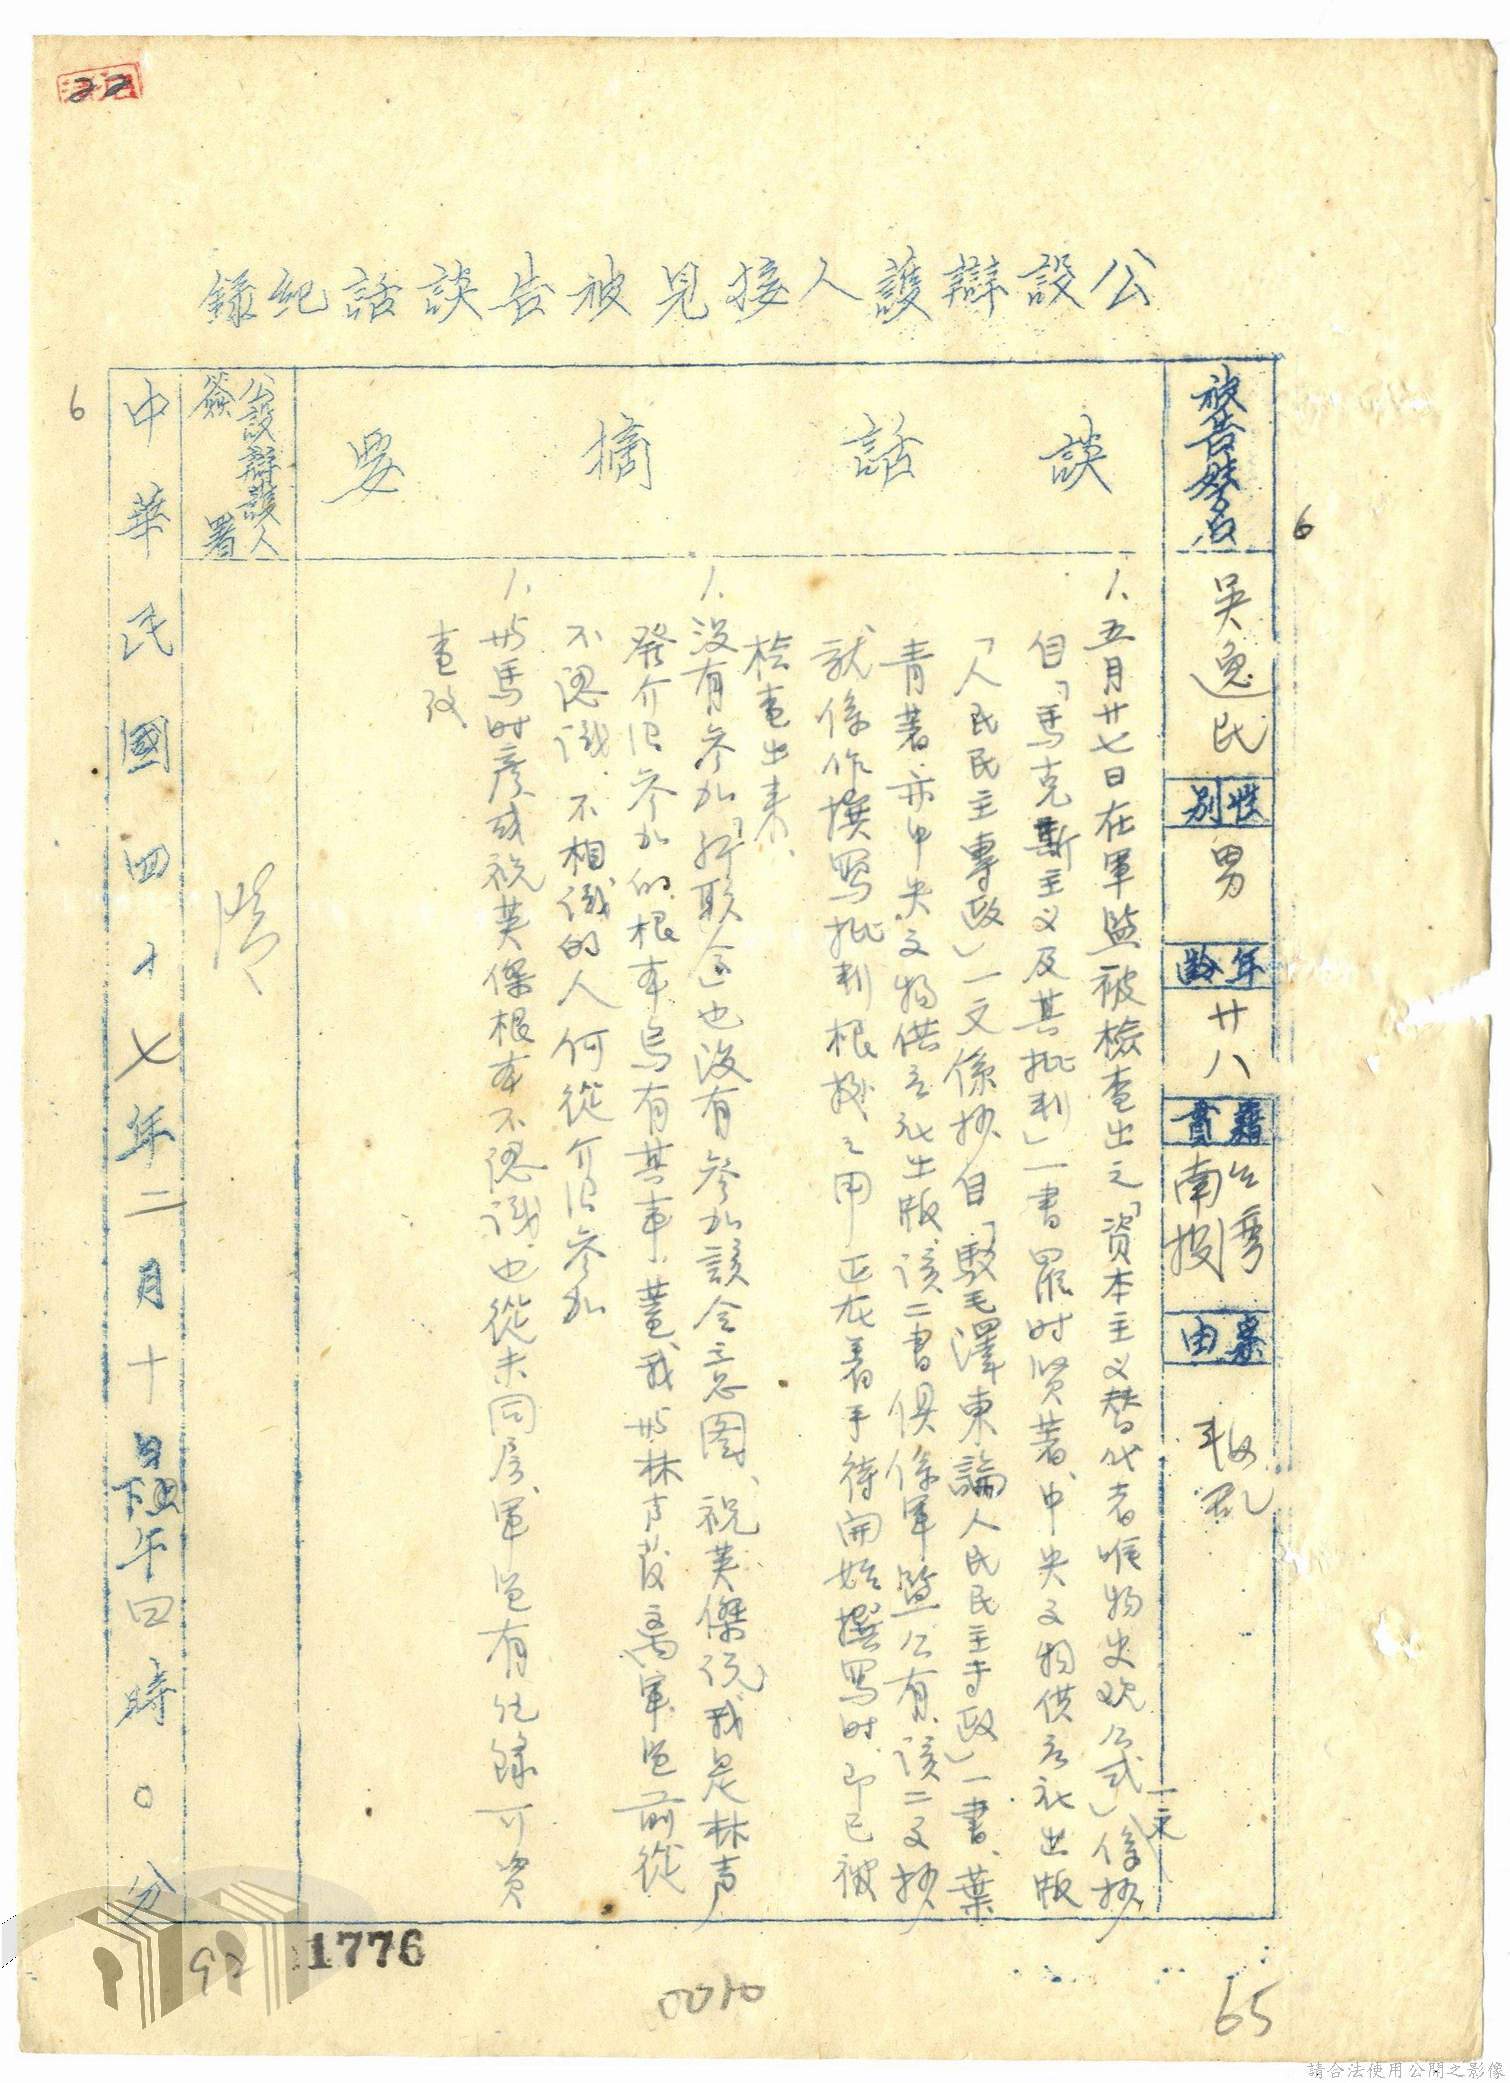 公設辯護人接見被告談話紀錄
被告姓名
吳逸民
性別
男
年齡
廿八
籍貫
台灣
南投
案由
叛亂
談話摘要
1、五月廿七日在軍監被檢查出之「資本主义替代者唯物史观公式」一文係抄
自「馬克斯主义及其批判」一書羅时贤著、中央文物供应社出版
「人民民主專政」一文係抄自「駁毛澤東論人民民主专政」一書、葉
青著、亦中央文物供应社出版、该二書俱係軍監公有、该二文抄
就係作撰寫批判根據之用正在着手待開始撰寫时、即已被
检查出来、
1、没有參加「新联会」也没有參加該会之意图、祝英傑説我是林声
發介绍參加的、根本烏有其事、蓋我與林声發离軍监前從
不認識、不相識的人何從介绍參加
1、與馬时彦或祝英傑根本不認識、也從未同房、軍监有纪錄可資
查攷
公設辯護人
簽署
中華民國四十七年二月十日下午四時0分
6
6
1776
92
0010
65
請合法使用公開之影像